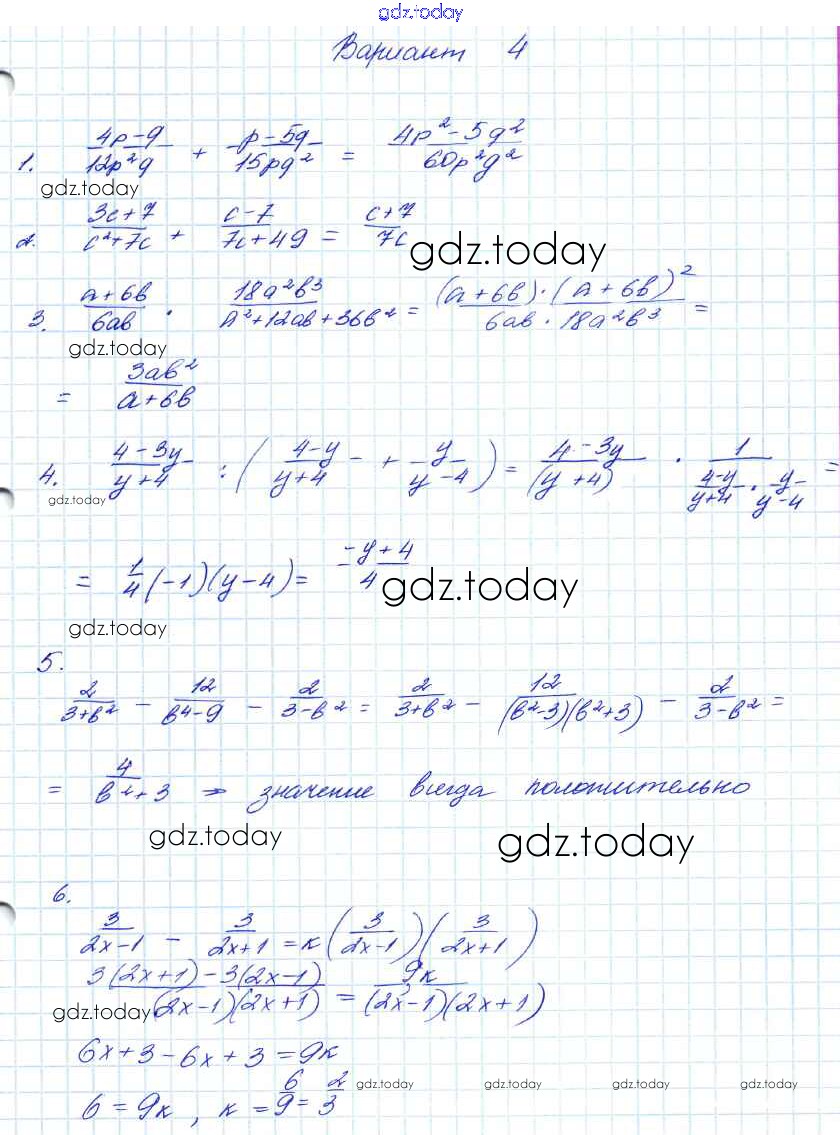 gdz.today
Вариант 4
1. (4p-q)/(12p²q) + (p-5q)/(15pq²) = (4p²-5q²)/(60p²q²)
gdz.today
2. (3c+7)/(c²+7c) + (c-7)/(7c+49) = (c+7)/(7c)
gdz.today
3. (a+6b)/(6ab) · (18a²b³)/(a²+12ab+36b²) = ((a+6b)·(a+6b)²)/(6ab·18a²b³) =
gdz.today
= (3ab²)/(a+6b)
4. (4-3y)/(y+4) : ((4-y)/(y+4) + y/(y-4)) = (4-3y)/(y+4) · 1/((4-y)/(y+4) · y/(y-4)) =
gdz.today
= 1/4 (-1)(y-4) = (-y+4)/4
gdz.today
gdz.today
5.
2/(3+b²) - 12/(b⁴-9) - 2/(3-b²) = 2/(3+b²) - 12/((b²-3)(b²+3)) - 2/(3-b²) =
= 4/(b²+3) => значение всегда положительно
gdz.today gdz.today
6.
3/(2x-1) - 3/(2x+1) = к(3/(2x-1))(3/(2x+1))
(3(2x+1)-3(2x-1))/((2x-1)(2x+1)) = 9к/((2x-1)(2x+1))
gdz.today
6x+3-6x+3=9к
6=9к, к=6/9=2/3
gdz.today gdz.today gdz.today gdz.today